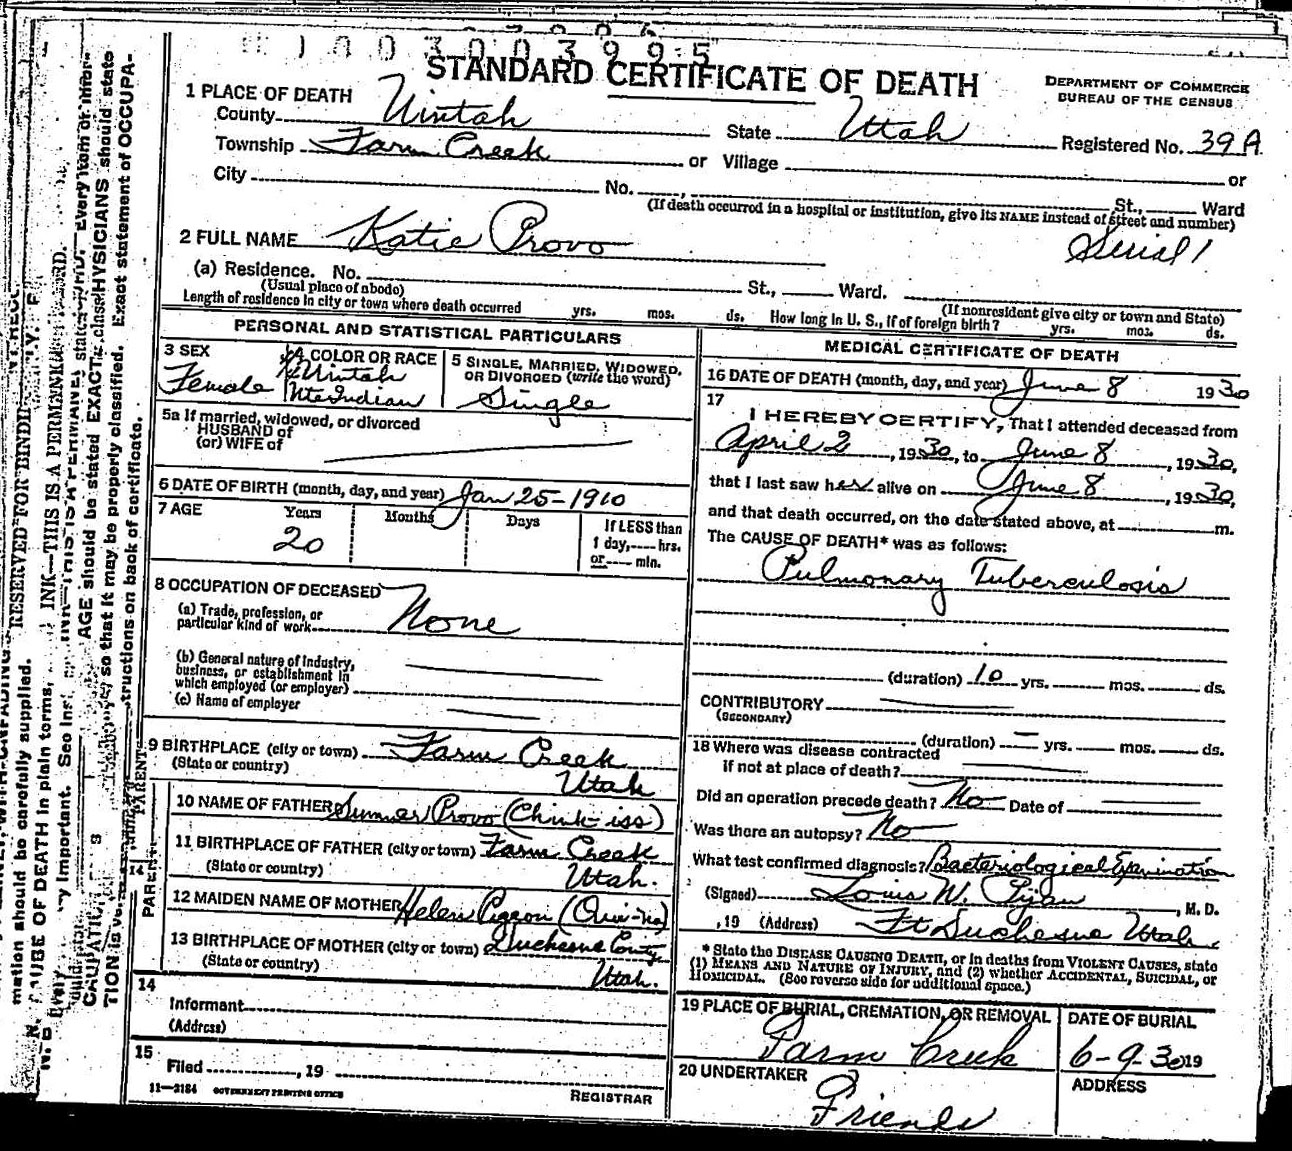 1003003995
STANDARD CERTIFICATE OF DEATH
DEPARTMENT OF COMMERCE
BUREAU OF THE CENSUS
1 PLACE OF DEATH
County Uintah State Utah Registered No. 39A
Township Farm Creek or Village or
City No. , St., Ward
(If death occurred in a hospital or institution, give its NAME instead of street and number)
2 FULL NAME Katie Provo Serial 1
(a) Residence. No. St., Ward.
(Usual place of abode) (If nonresident give city or town and State)
Length of residence in city or town where death occurred yrs. mos. ds. How long in U. S., if of foreign birth? yrs. mos. ds.
PERSONAL AND STATISTICAL PARTICULARS
3 SEX
Female
4 COLOR OR RACE
Uintah
Ute Indian
5 SINGLE, MARRIED, WIDOWED,
OR DIVORCED (write the word)
Single
5a If married, widowed, or divorced
HUSBAND of
(or) WIFE of
6 DATE OF BIRTH (month, day, and year) Jan 25-1910
7 AGE Years Months Days If LESS than
20 1 day, hrs.
or min.
8 OCCUPATION OF DECEASED
(a) Trade, profession, or
particular kind of work None
(b) General nature of industry,
business, or establishment in
which employed (or employer)
(c) Name of employer
9 BIRTHPLACE (city or town) Farm Creek
(State or country) Utah
PARENTS
10 NAME OF FATHER Sumner Provo (Chink-iss)
11 BIRTHPLACE OF FATHER (city or town) Farm Creek
(State or country) Utah.
12 MAIDEN NAME OF MOTHER Helen Pigeon
13 BIRTHPLACE OF MOTHER (city or town) Duchesne County
(State or country) Utah.
14
Informant
(Address)
15
Filed , 19
REGISTRAR
11—3184 GOVERNMENT PRINTING OFFICE
MEDICAL CERTIFICATE OF DEATH
16 DATE OF DEATH (month, day, and year) June 8 1930
17
I HEREBY CERTIFY, That I attended deceased from
April 2, 1930, to June 8, 1930,
that I last saw her alive on June 8, 1930,
and that death occurred, on the date stated above, at m.
The CAUSE OF DEATH* was as follows:
Pulmonary Tuberculosis
(duration) 10 yrs. mos. ds.
CONTRIBUTORY
(SECONDARY)
(duration) yrs. mos. ds.
18 Where was disease contracted
if not at place of death?
Did an operation precede death? No Date of
Was there an autopsy? No
What test confirmed diagnosis? Bacteriological Examination
(Signed) Louis W. , M. D.
, 19 (Address) Ft Duchesne Utah.
* State the DISEASE CAUSING DEATH, or in deaths from VIOLENT CAUSES, state
(1) MEANS AND NATURE OF INJURY, and (2) whether ACCIDENTAL, SUICIDAL, or
HOMICIDAL. (See reverse side for additional space.)
19 PLACE OF BURIAL, CREMATION, OR REMOVAL
Farm Creek
DATE OF BURIAL
6-9-30 19
20 UNDERTAKER
Friends
ADDRESS